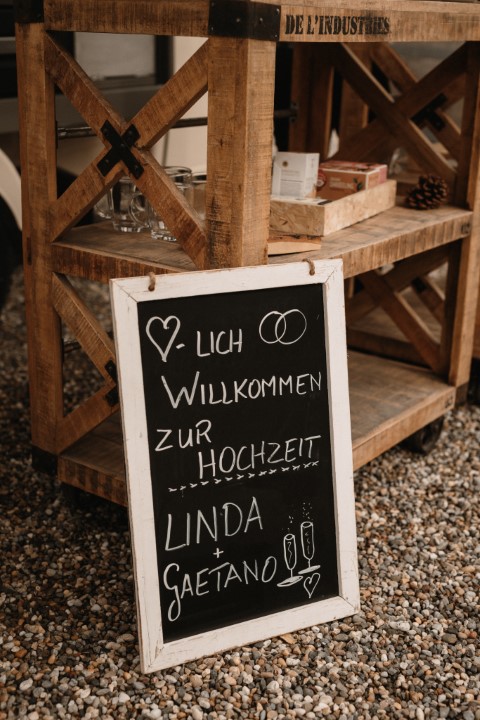 DE L'INDUSTRIES
♡-LICH
WILLKOMMEN
ZUR
HOCHZEIT
LINDA
+
GAETANO